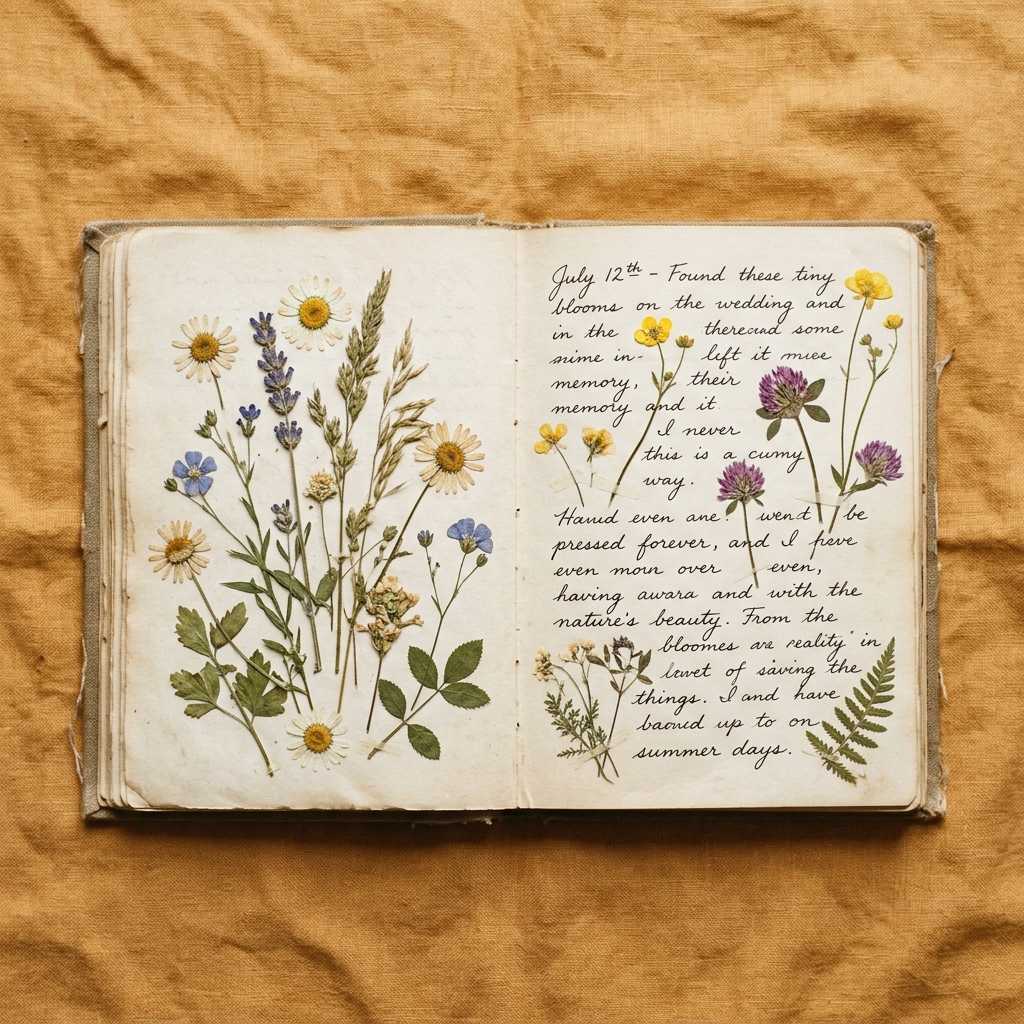 July 12th - Found these tiny
blooms on the wedding and
in the thereand some
mime in- left it muee
memory, their
memory and it
I never
this is a cumy
way.
Haud even ane. went be
pressed forever, and I have
even mon over even,
having awara and with the
nature's beauty. From the
bloomes are reality in
of saving the
things. I and have
up to on
summer days.